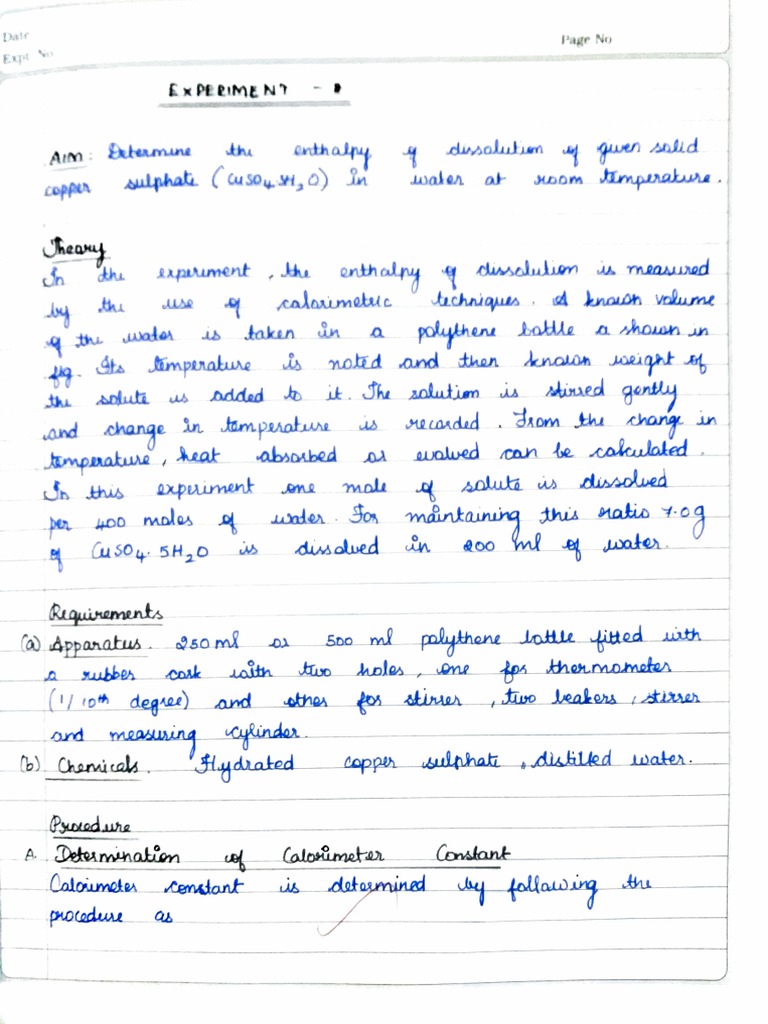 Date
Expt. No
Page No
EXPERIMENT -
Aim: Determine the enthalpy of dissolution of given solid
copper sulphate (CuSO4.5H2O) in water at room temperature.
Theory
In the experiment, the enthalpy of dissolution is measured
by the use of calorimetric techniques. A known volume
of the water is taken in a polythene bottle a shown in
fig. Its temperature is noted and then known weight of
the solute is added to it. The solution is stirred gently
and change in temperature is recorded. From the change in
temperature, heat absorbed or evolved can be calculated.
In this experiment one mole of solute is dissolved
per 400 moles of water. For maintaining this ratio 7.0g
of CuSO4.5H2O is dissolved in 200 ml of water.
Requirements
(a) Apparatus. 250ml or 500 ml polythene bottle fitted with
a rubber cork with two holes, one for thermometer
(1/10th degree) and other for stirrer, two beakers, stirrer
and measuring cylinder.
(b) Chemicals. Hydrated copper sulphate, distilled water.
Procedure
A. Determination of Calorimeter Constant
Calorimeter constant is determined by following the
procedure as